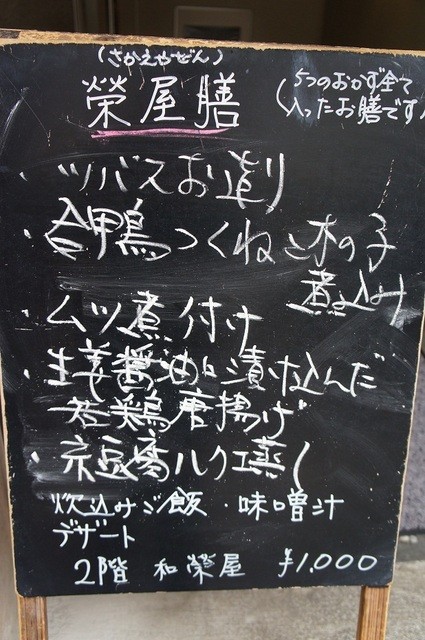 (さかえやぜん)
榮屋膳
(5つのおかず全て
入ったお膳です)
・ツバスお造り
・合鴨つくねと木の子
煮込み
・ムツ煮付け
・生姜醤油に漬け込んだ
若鶏唐揚げ
・京豆腐ハク蒸し
炊込みご飯・味噌汁
デザート
2階 和榮屋 ¥1,000